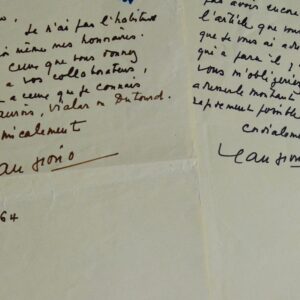 Je n'ai pas l'habitude
moi même mes honoraires.
ceux que vous donnez
a vos collaborateurs,
a ceux que je connais
Vialar, Dutourd.
amicalement
Jean Giono
64
pas avoir encore
l'article que vous
que je vous ai
qui a paru il y
vous m'obligeriez
montant
possible
cordialement
Jean Giono